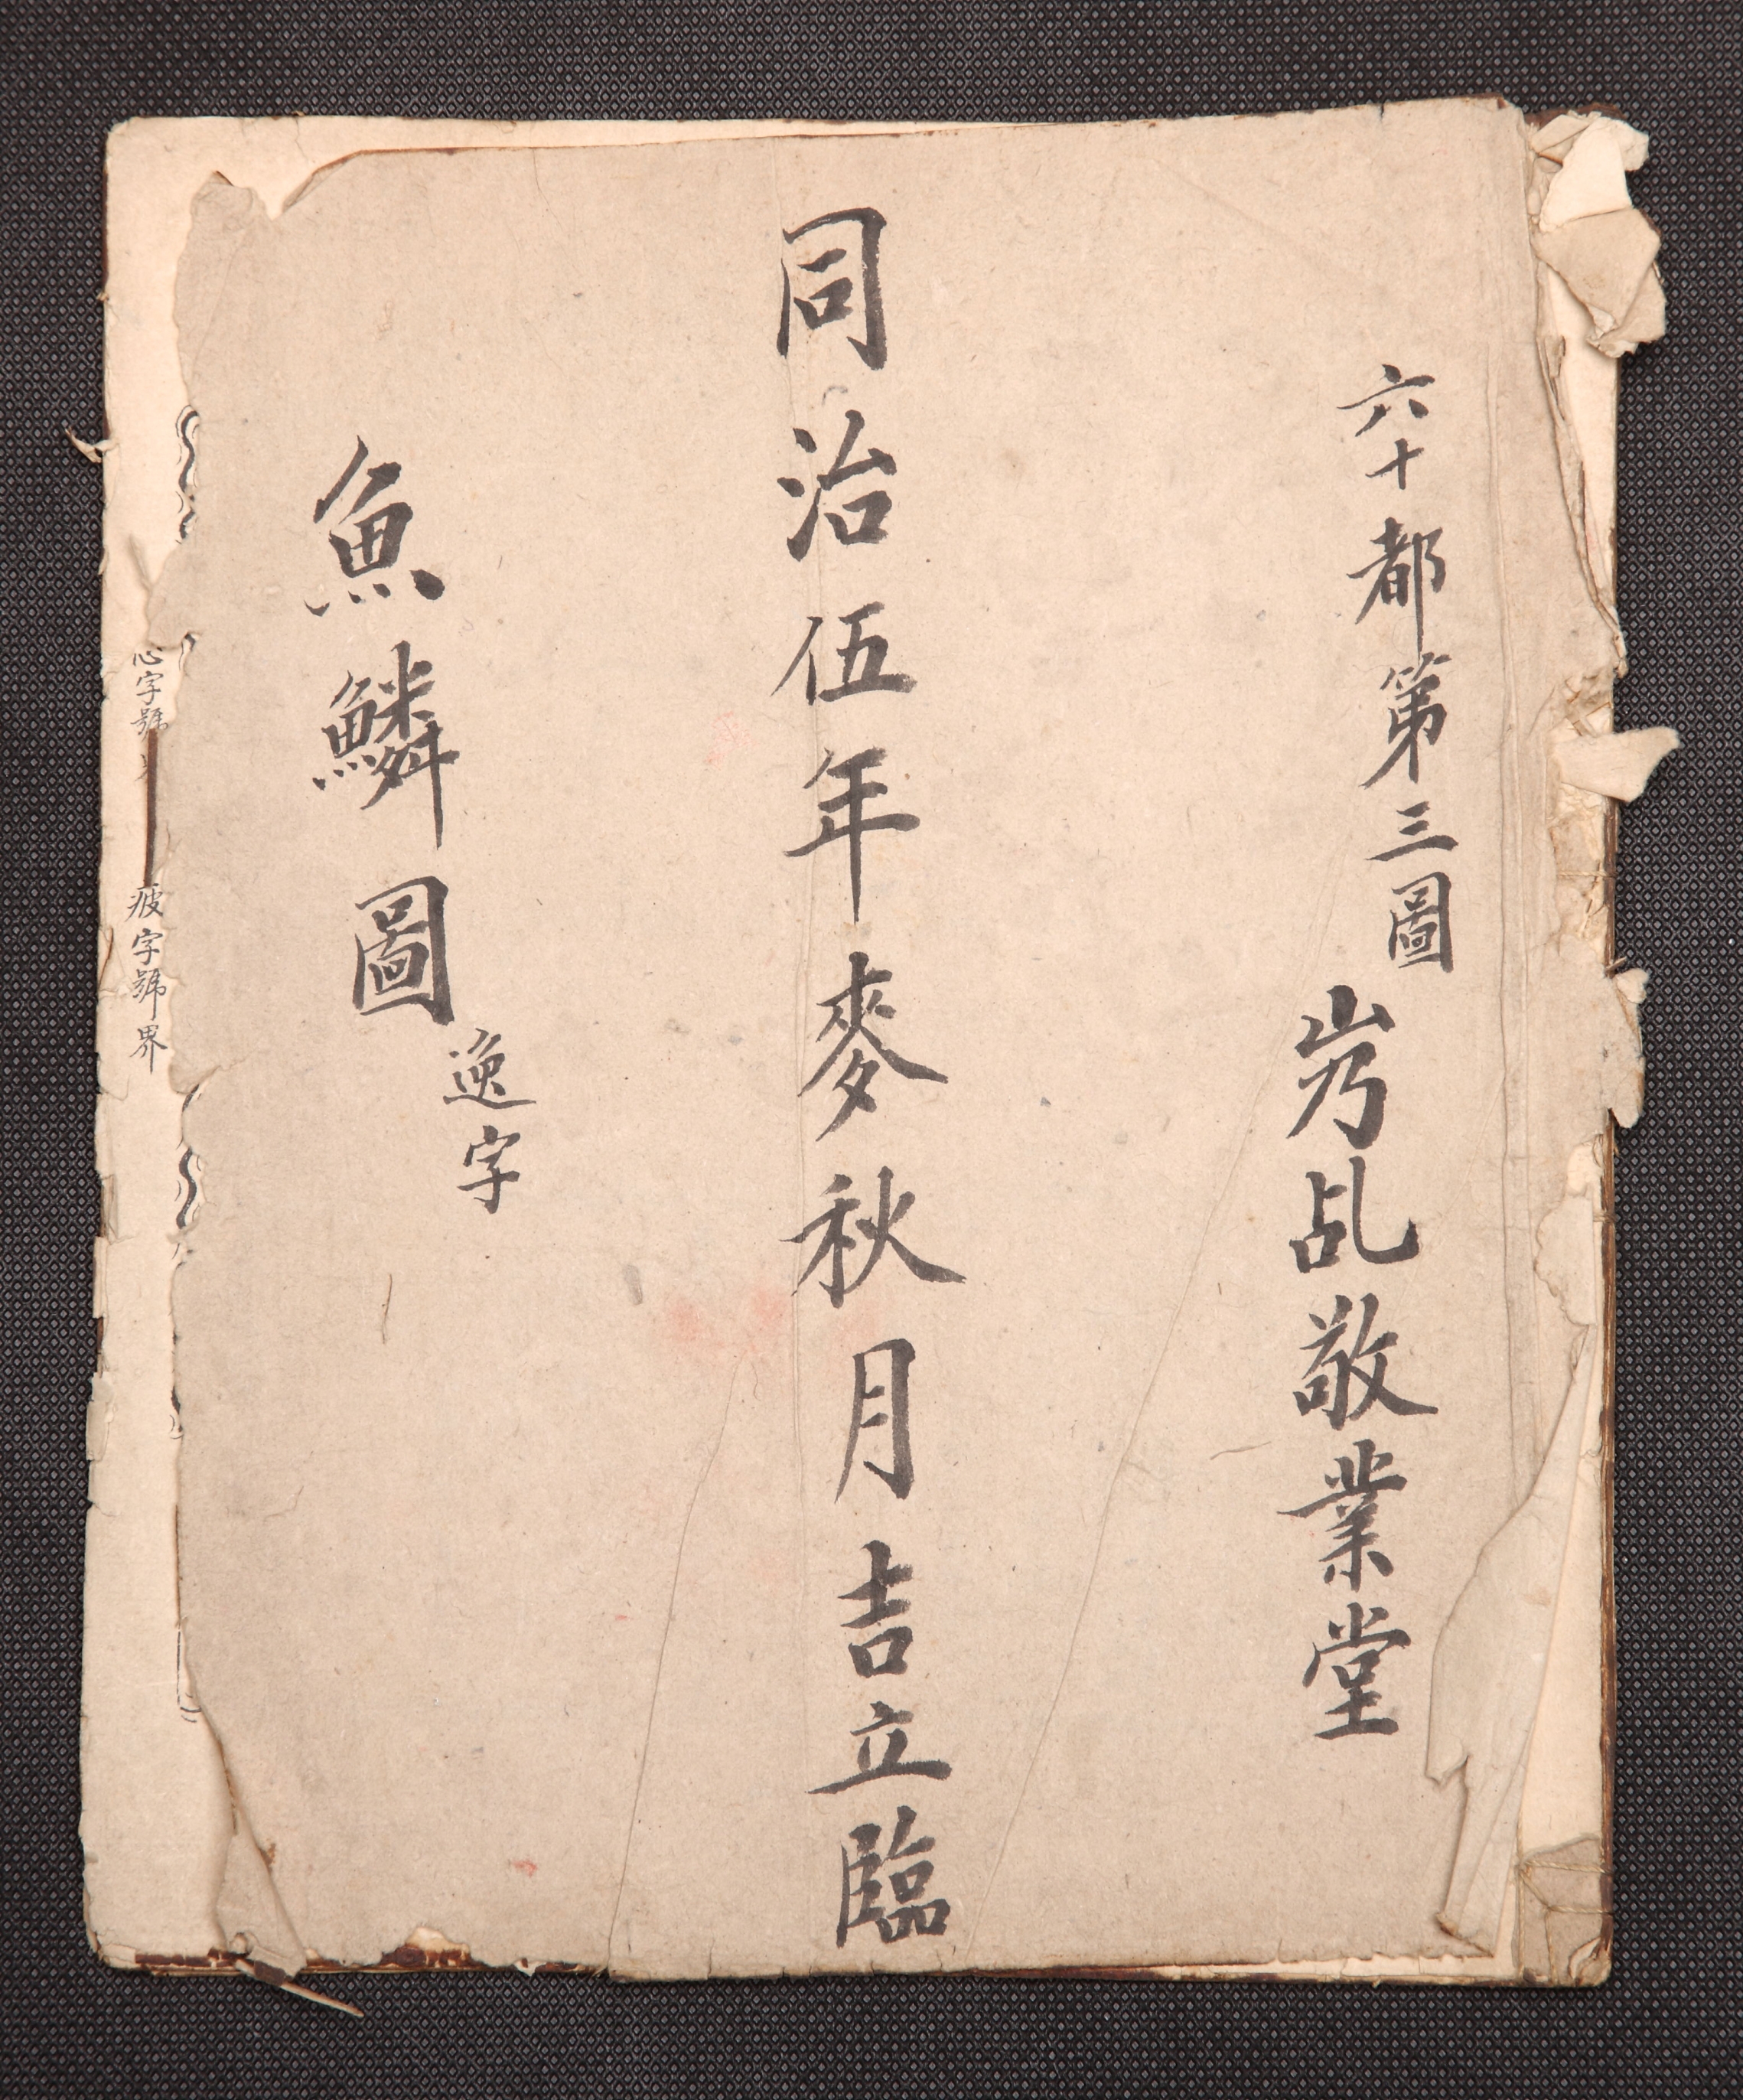 六十都第三圖
岃乩敬業堂
同治伍年麥秋月吉立臨
魚鱗圖
逸字
心字號
疲字號界